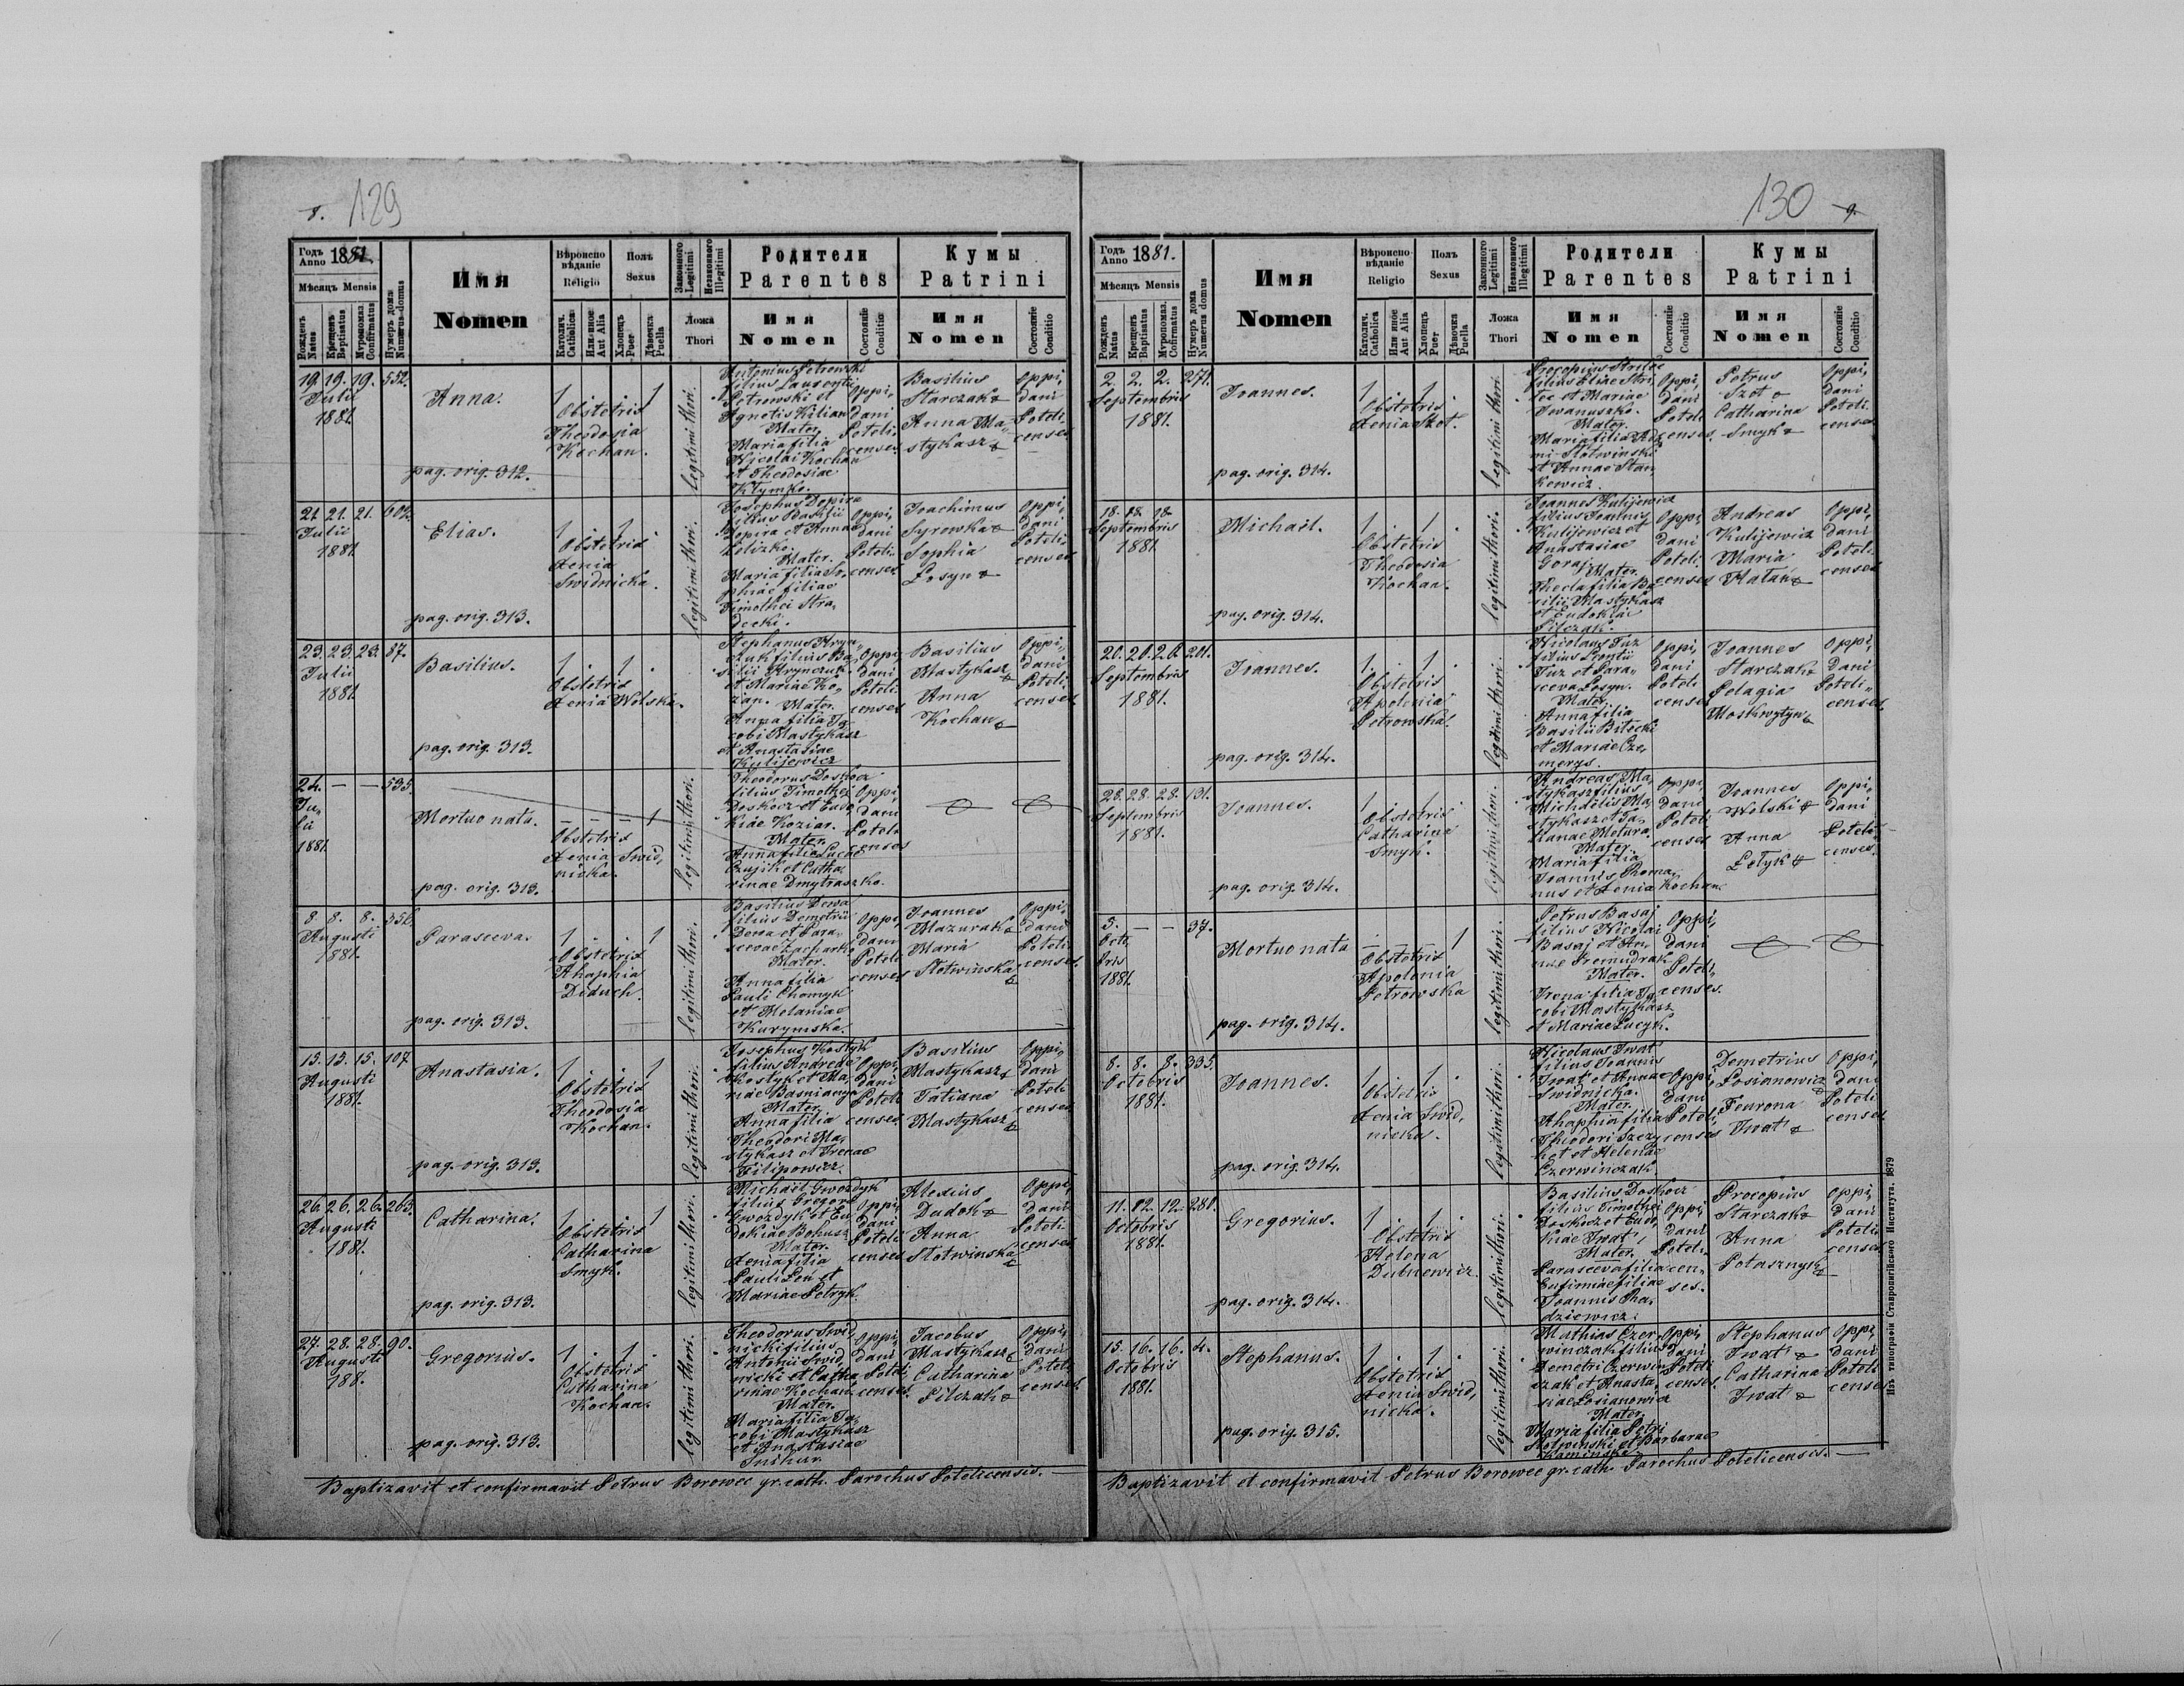 8. 129
Годъ Anno 1881.
Мѣсяцъ Mensis
Рожденъ Natus
Крещенъ Baptisatus
Мѵропомаз. Confirmatus
Нумеръ дома Numerus domus
Имя
Nomen
Вѣроисповѣданіе
Religio
Католич. Catholica
Или иное Aut Alia
Полъ
Sexus
Хлопецъ Puer
Дѣвочка Puella
Законного Legitimi
Незаконного Illegitimi
Ложа
Thori
Родители
Parentes
Имя
Nomen
Состояніе Conditio
Кумы
Patrini
Имя
Nomen
Состояніе Conditio
19. 19. 19. 552.
Julii
1881.
Anna.
1 . . 1
Obstetrix
Theodosia
Kochan.
pag. orig. 312.
legitimi thori.
Antonius Petrowski
filius Laurentii
Petrowski et
Agnetis Kilian
Mater.
Maria filia
Nicolai Kochan
et Theodosiae
Klymko.
Oppidani
Potelicenses
Basilius
Starczak
Anna Mastykasz
Oppidani
Potelicenses
21. 21. 21. 602.
Julii
1881.
Elias.
1 . 1 .
Obstetrix
Xenia
Swidnicka.
pag. orig. 313.
legitimi thori.
Josephus Dopira
filius Basilii
Dopira et Annae
Zelizko.
Mater.
Maria filia Sophiae filiae
Timothei Stradecki.
Oppidani
Potelicenses
Joachimus
Syrowka
Sophia
Losyn
Oppidani
Potelicenses
23. 23. 23. 87.
Julii
1881.
Basilius.
1 . 1 .
Obstetrix
Xenia Wolska.
pag. orig. 313.
legitimi thori.
Stephanus Hrynczuk filius Basilii Hrynczuk
et Mariae Kozan.
Mater.
Anna filia Jacobi Mastykasz
et Anastasiae
Kulijewicz
Oppidani
Potelicenses
Basilius
Mastykasz
Anna
Kochan
Oppidani
Potelicenses
24. — — 535.
Julii
1881.
Mortuo nata.
— — — 1
Obstetrix
Xenia Swidnicka.
pag. orig. 313.
legitimi thori.
Theodorus Doskocz
filius Timothei
Doskocz et Eudokiae Koziar.
Mater.
Anna filia Lucae
Czujik et Catharinae Dmytraszko.
Oppidani
Potelicenses
8. 8. 8. 356.
Augusti
1881.
Parasceva.
1 . . 1
Obstetrix
Ahaphia
Diduch.
pag. orig. 313.
legitimi thori.
Basilius Dewa
filius Demetrii
Dewa et Parascevae Zacharko.
Mater.
Anna filia
Pauli Chomyk
et Melaniae
Kurymska.
Oppidani
Potelicenses
Joannes
Mazurak
Maria
Slotwinska
Oppidani
Potelicenses
15. 15. 15. 107
Augusti
1881.
Anastasia.
1 . . 1
Obstetrix
Theodosia
Kochan.
pag. orig. 313.
legitimi thori.
Josephus Kostyk
filius Andreae
Kostyk et Mariae
Mater.
Anna filia
Theodori Mastykasz et Irenae
Filipowicz.
Oppidani
Potelicenses
Basilius
Mastykasz
Tatiana
Mastykasz
Oppidani
Potelicenses
26. 26. 26. 263.
Augusti
1881.
Catharina.
1 . . 1
Obstetrix
Catharina
Smyk.
pag. orig. 313.
legitimi thori.
Michaël Gwozdyk
filius Gregorii
Gwozdyk et Eudokiae Bohusz
Mater.
Xenia filia
Pauli et
Mariae Petryk.
Oppidani
Potelicenses
Alexius
Dudok
Anna
Slotwinska
Oppidani
Potelicenses
27. 28. 28. 90.
Augusti
188.
Gregorius.
1 . 1 .
Obstetrix
Catharina
Kochan.
pag. orig. 313.
legitimi thori.
Theodorus Swidnicki filius
Antonii Swidnicki et Catharinae Kochan.
Mater.
Maria filia Jacobi Mastykasz
et Anastasiae
Snihur.
Oppidani
Potelicenses
Jacobus
Mastykasz
Catharina
Pilczak
Oppidani
Potelicenses
Baptizavit et confirmavit Petrus Borowec gr. cath. Parochus Potelicensis.
130 9.
Годъ Anno 1881.
Мѣсяцъ Mensis
Рожденъ Natus
Крещенъ Baptisatus
Мѵропомаз. Confirmatus
Нумеръ дома Numerus domus
Имя
Nomen
Вѣроисповѣданіе
Religio
Католич. Catholica
Или иное Aut Alia
Полъ
Sexus
Хлопецъ Puer
Дѣвочка Puella
Законного Legitimi
Незаконного Illegitimi
Ложа
Thori
Родители
Parentes
Имя
Nomen
Состояніе Conditio
Кумы
Patrini
Имя
Nomen
Состояніе Conditio
2. 2. 2. 271.
Septembris
1881.
Joannes.
1 . 1 .
Obstetrix
Xenia Szot.
pag. orig. 314.
legitimi thori.
Procopius Strilec
filius Eliae Strilec et Mariae
Iwanuszko.
Mater.
Maria filia Slotwinski
et Annae Stankewicz.
Oppidani
Potelicenses.
Petrus
Szot
Catharina
Smyk
Oppidani
Potelicenses
18. 18. 18.
Septembris
1881.
Michaël.
1 . 1 .
Obstetrix
Theodosia
Kochan.
pag. orig. 314.
legitimi thori.
Joannes Kulijewicz
filius Joannis
Kulijewicz et
Anastasiae
Goraj.
Mater.
Thecla filia Basilii Mastykasz
et Eudokiae
Pilczak.
Oppidani
Potelicenses
Andreas
Kulijewicz
Maria
Hatan
Oppidani
Potelicenses
20. 20. 20. 201.
Septembris
1881.
Joannes.
1 . 1 .
Obstetrix
Apolonia
Petrowska.
pag. orig. 314.
legitimi thori.
Nicolaus Tuz
filius Leontii
Tuz et Parasceva Losyn.
Mater.
Anna filia
Basilii Bilecki
et Mariae Czemerys.
Oppidani
Potelicenses
Joannes
Starczak
Pelagia
Moskwytyn
Oppidani
Potelicenses.
28. 28. 28. 131.
Septembris
1881.
Joannes.
1 . 1 .
Obstetrix
Catharina
Smyk.
pag. orig. 314.
legitimi thori.
Andreas Mastykasz filius
Michaëlis Mastykasz et Tatianae
Mater.
Maria filia
Joannis
et Xenia Kochan.
Oppidani
Potelicenses
Joannes
Wolski
Anna
Letyk
Oppidani
Potelicenses.
5. — — 37.
Octobris
1881.
Mortuo nata
— . 1
Obstetrix
Apolonia
Petrowska
pag. orig. 314.
legitimi thori.
Petrus Basaj
filius Nicolai
Basaj et Annae Premudrak
Mater.
Irena filia Jacobi Mastykasz
et Mariae Lucyk.
Oppidani
Potelicenses.
8. 8. 8. 335.
Octobris
1881.
Joannes.
1 . 1 .
Obstetrix
Xenia Swidnicka.
pag. orig. 314.
legitimi thori.
Nicolaus Iwat
filius Joannis
Iwat et Annae
Swidnicka.
Mater.
Ahaphia filia
Theodori
et Helenae
Czerwinczak.
Oppidani
Potelicenses
Demetrius
Losianowicz
Feurona
Iwat
Oppidani
Potelicenses
11. 12. 12. 281.
Octobris
1881.
Gregorius.
1 . 1 .
Obstetrix
Helena
Dubnewicz.
pag. orig. 314.
legitimi thori.
Basilius Doskocz
filius Timothei
Doskocz et Eudokiae Iwat,
Mater.
Parasceva filia
Eufimiae filiae
Joannis Radziewicz.
Oppidani
Potelicenses.
Procopius
Starczak
Anna
Potasznyk
Oppidani
Potelicenses
15. 16. 16. 4.
Octobris
1881.
Stephanus.
1 . 1 .
Obstetrix
Xenia Swidnicka.
pag. orig. 315.
legitimi thori.
Mathias Czerwinczak filius
Demetri Czerwinczak et Anastasiae Losianowicz
Mater.
Maria filia Petri
Slotwinski et Barbarae
Kaminska.
Oppidani
Potelicenses.
Stephanus
Iwat
Catharina
Iwat
Oppidani
Potelicenses
Baptizavit et confirmavit Petrus Borowec gr. cath. Parochus Potelicensis.
Изъ типографіи Ставропигійского Института. 1879